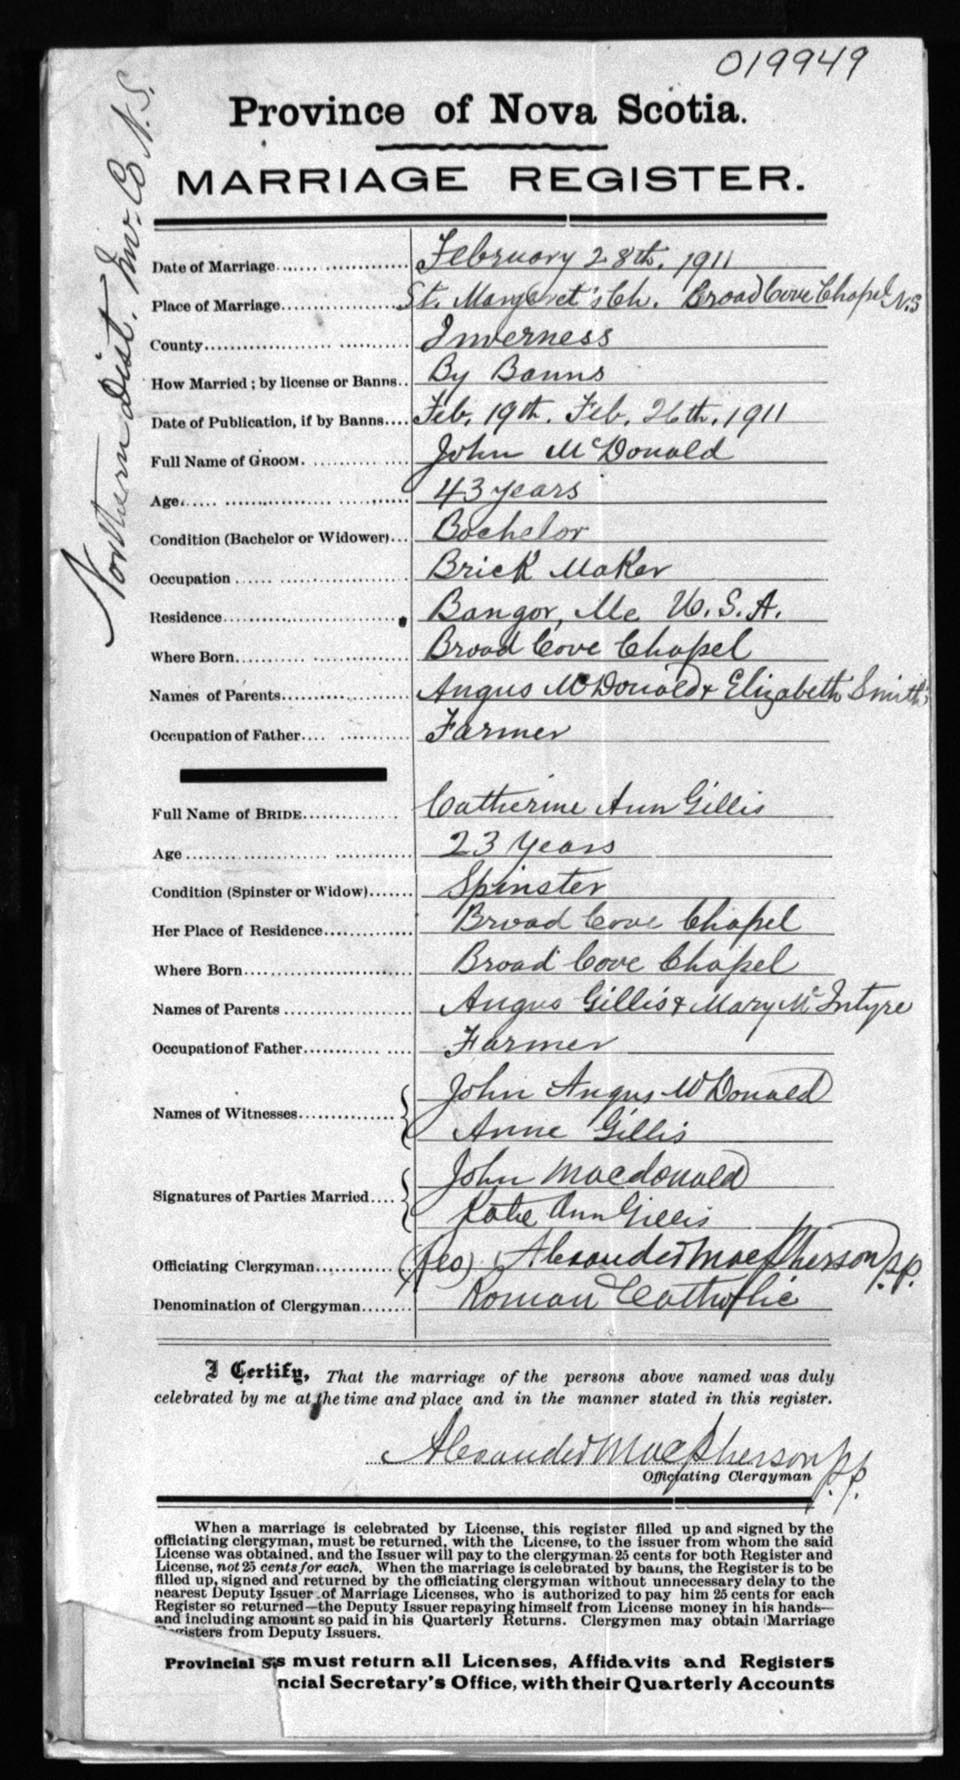 019949
Northern Dist. Inv. Co N.S.
Province of Nova Scotia.
MARRIAGE REGISTER.
Date of Marriage........ February 28th, 1911
Place of Marriage........ St. Margaret's Ch. Broad Cove Chapel N.S
County........ Inverness
How Married; by license or Banns.. By Banns
Date of Publication, if by Banns.... Feb. 19th. Feb. 26th, 1911
Full Name of GROOM. John McDonald
Age........ 43 years
Condition (Bachelor or Widower)... Bachelor
Occupation ........ Brick Maker
Residence........ Bangor, Me U.S.A.
Where Born........ Broad Cove Chapel
Names of Parents........ Angus McDonald & Elizabeth Smith
Occupation of Father.... Farmer
Full Name of BRIDE........ Catherine Ann Gillis
Age........ 23 years
Condition (Spinster or Widow)....... Spinster
Her Place of Residence........ Broad Cove Chapel
Where Born........ Broad Cove Chapel
Names of Parents ........ Angus Gillis & Mary McIntyre
Occupation of Father........ Farmer
Names of Witnesses........ John Angus McDonald
Anne Gillis
Signatures of Parties Married.... John Macdonald
Katie Ann Gillis
Officiating Clergyman........ Alexander MacPherson p.p.
Denomination of Clergyman........ Roman Catholic
I Certify, That the marriage of the persons above named was duly
celebrated by me at the time and place and in the manner stated in this register.
Alexander MacPherson p.p.
Officiating Clergyman
When a marriage is celebrated by License, this register filled up and signed by the
officiating clergyman, must be returned, with the License, to the issuer from whom the said
License was obtained, and the Issuer will pay to the clergyman 25 cents for both Register and
License, not 25 cents for each. When the marriage is celebrated by banns, the Register is to be
filled up, signed and returned by the officiating clergyman without unnecessary delay to the
nearest Deputy Issuer of Marriage Licenses, who is authorized to pay him 25 cents for each
Register so returned—the Deputy Issuer repaying himself from License money in his hands—
and including amount so paid in his Quarterly Returns. Clergymen may obtain Marriage
Registers from Deputy Issuers.
Provincial s must return all Licenses, Affidavits and Registers
ncial Secretary's Office, with their Quarterly Accounts